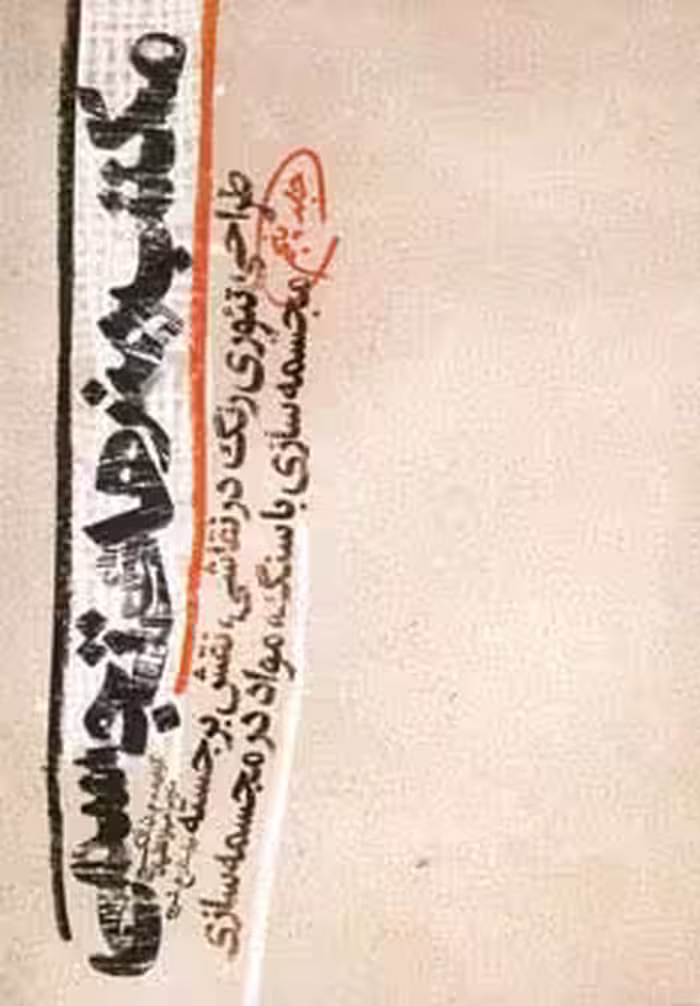 مکتب هنرهای تجسمی
طراحی، تئوری رنگ در نقاشی، نقش برجسته
مجسمه سازی با سنگ، مواد در مجسمه سازی
جلد